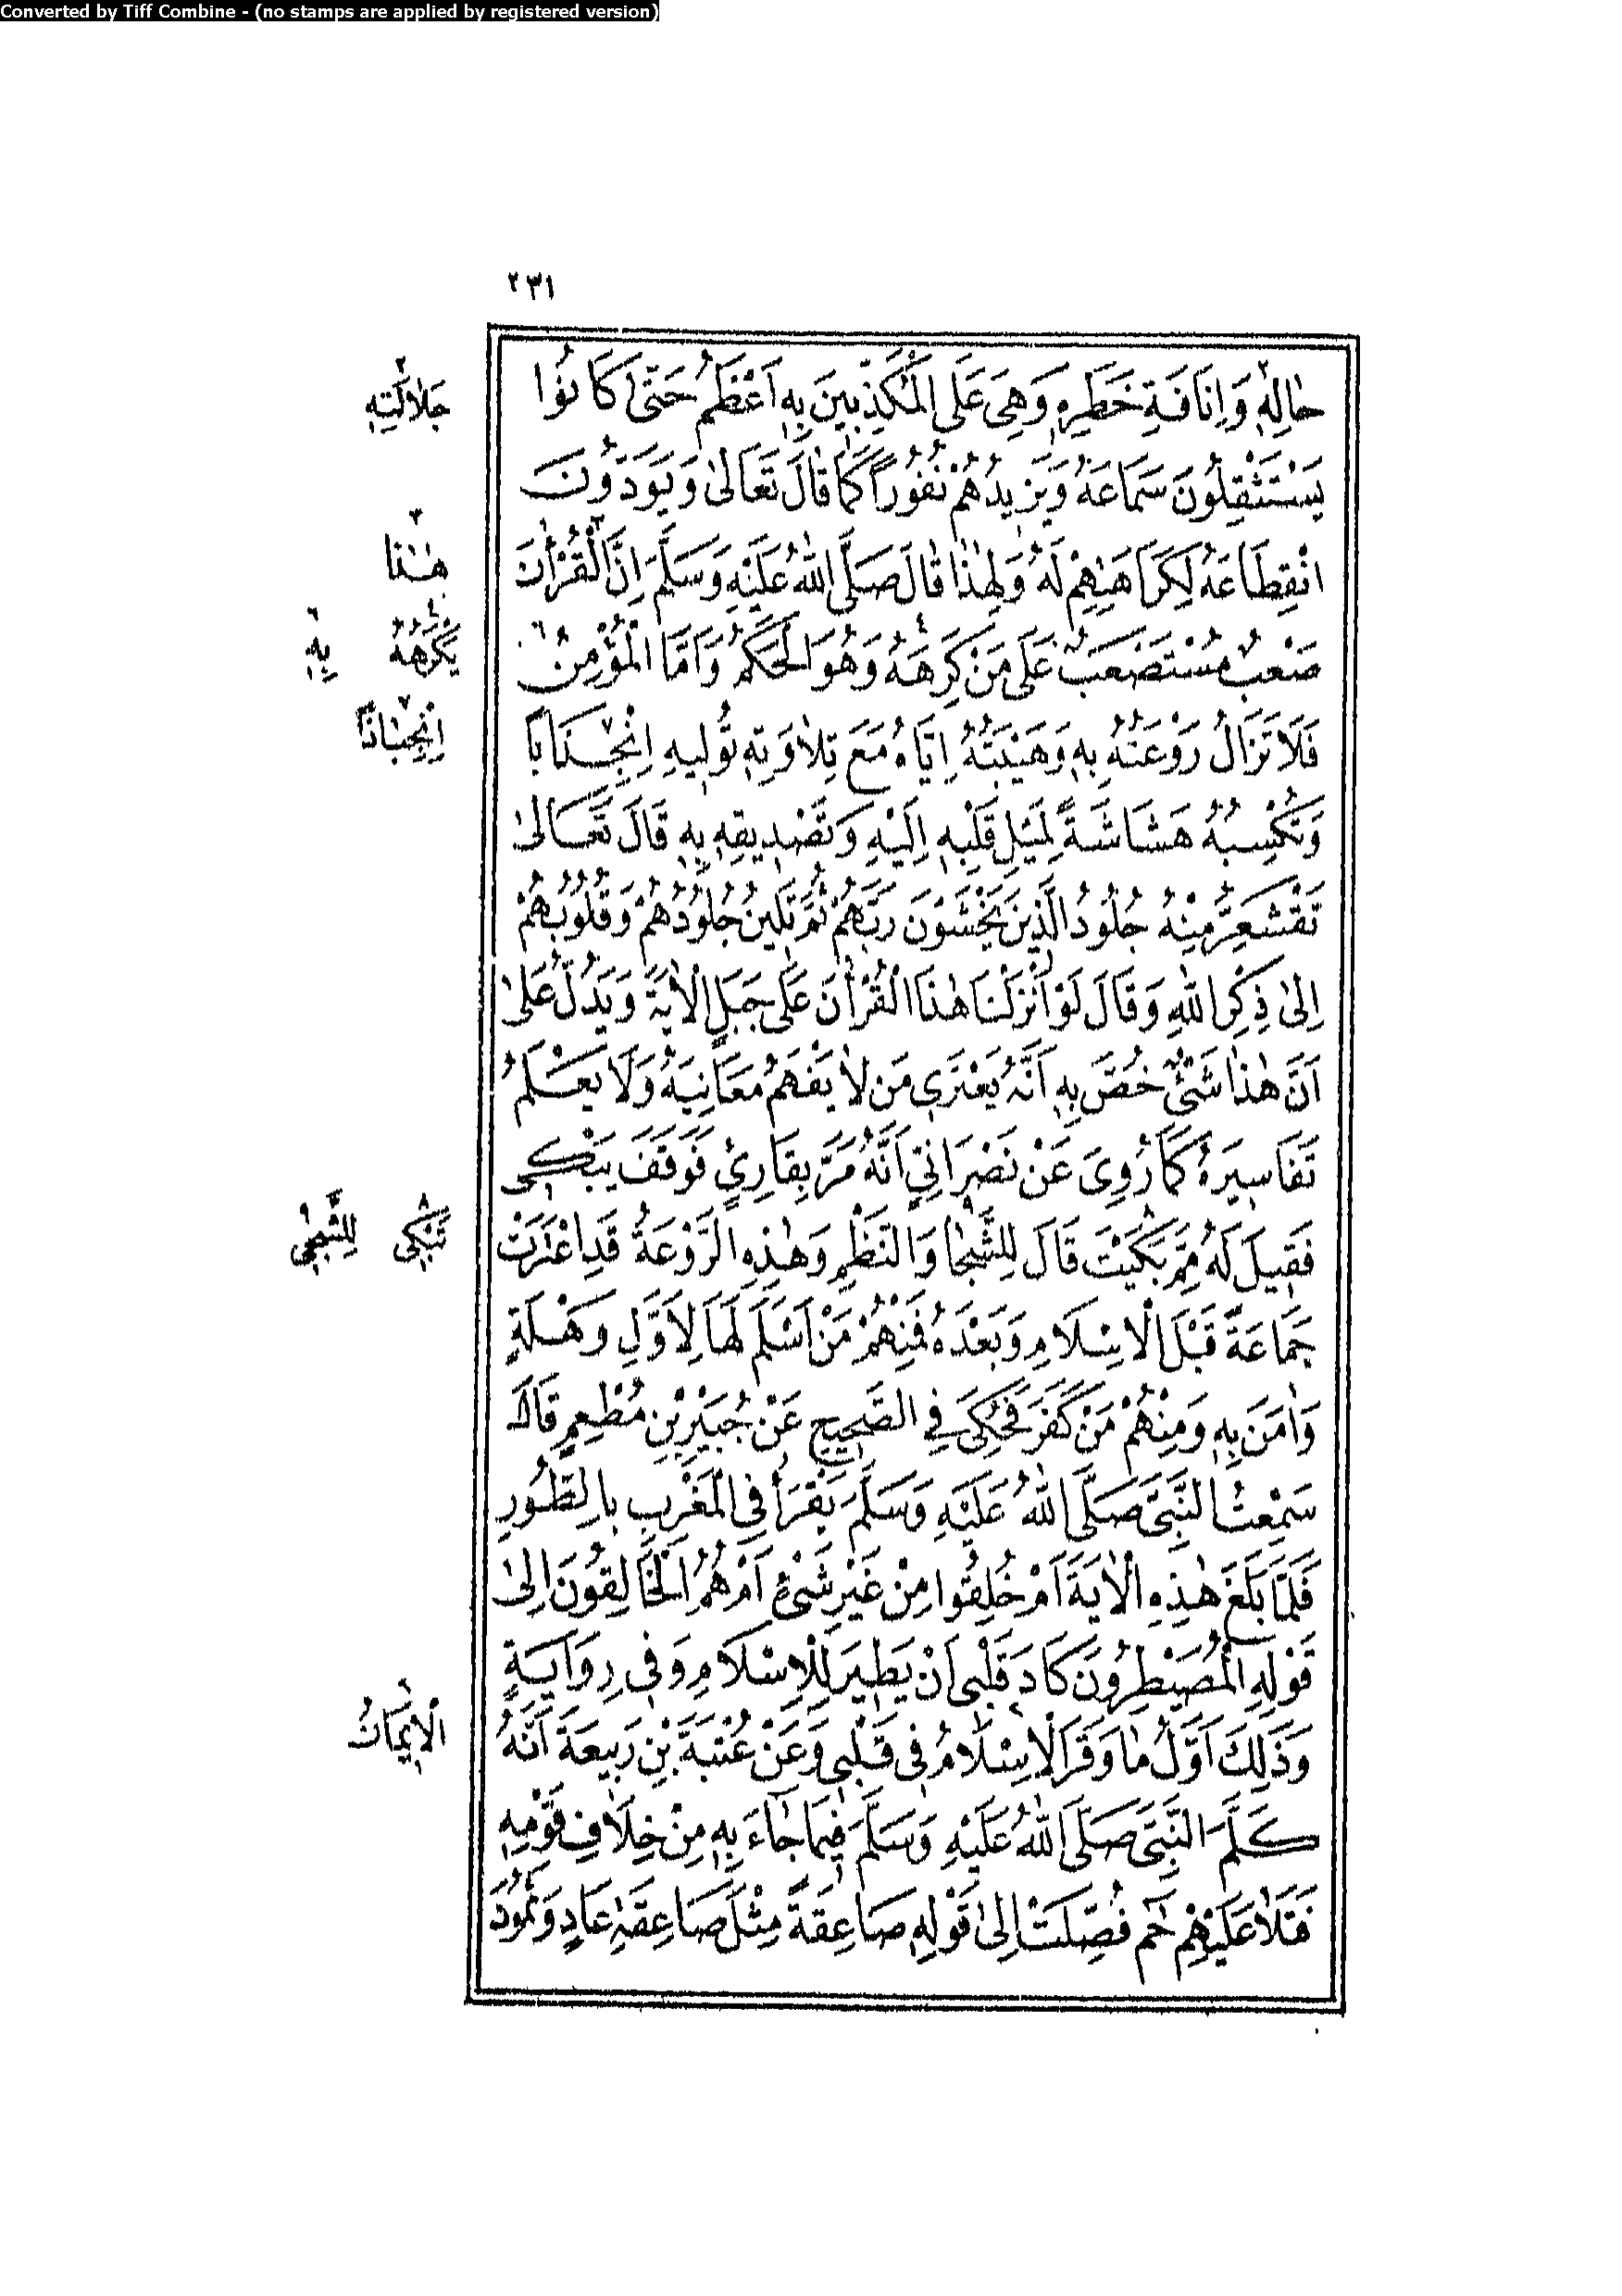 Converted by Tiff Combine - (no stamps are applied by registered version)
٢٣١
حَالِهِ وَاِنَافَةِ خَطَرِهِ وَهِيَ عَلَى الْمُكَذِّبِينَ بِهِ اَعْظَمُ حَتّٰى كَانُوا
يَسْتَثْقِلُونَ سَمَاعَهُ وَيَزِيدُهُمْ نُفُورًا كَمَا قَالَ تَعَالٰى وَيَوَدُّونَ
انْقِطَاعَهُ لِكَرَاهَتِهِمْ لَهُ وَلِهٰذَا قَالَ صَلَّى اللّٰهُ عَلَيْهِ وَسَلَّمَ اِنَّ الْقُرْاٰنَ
صَعْبٌ مُسْتَصْعَبٌ عَلَى مَنْ كَرِهَهُ وَهُوَ الْحَكَمُ وَاَمَّا الْمُؤْمِنُ
فَلَا تَزَالُ رَوْعَتُهُ بِهِ وَهَيْبَتُهُ اِيَّاهُ مَعَ تِلَاوَتِهِ تُولِيهِ انْجِذَابًا
وَتُكْسِبُهُ هَشَاشَةً لِمَيْلِ قَلْبِهِ اِلَيْهِ وَتَصْدِيقِهِ بِهِ قَالَ تَعَالٰى
تَقْشَعِرُّ مِنْهُ جُلُودُ الَّذِينَ يَخْشَوْنَ رَبَّهُمْ ثُمَّ تَلِينُ جُلُودُهُمْ وَقُلُوبُهُمْ
اِلٰى ذِكْرِ اللّٰهِ وَقَالَ لَوْ اَنْزَلْنَا هٰذَا الْقُرْاٰنَ عَلَى جَبَلٍ الْاٰيَةَ وَيَدُلُّ عَلٰى
اَنَّ هٰذَا شَيْءٌ خُصَّ بِهِ اَنَّهُ يَعْتَرِي مَنْ لَا يَفْهَمُ مَعَانِيَهُ وَلَا يَعْلَمُ
تَفَاسِيرَهُ كَمَا رُوِيَ عَنْ نَصْرَانِيٍّ اَنَّهُ مَرَّ بِقَارِئٍ فَوَقَفَ يَبْكِي
فَقِيلَ لَهُ مِمَّ بَكَيْتَ قَالَ لِلشَّجَا وَالنَّظْمِ وَهٰذِهِ الرَّوْعَةُ قَدِ اعْتَرَتْ
جَمَاعَةً قَبْلَ الْاِسْلَامِ وَبَعْدَهُ فَمِنْهُمْ مَنْ اَسْلَمَ لَهَا لِاَوَّلِ وَهْلَةٍ
وَاٰمَنَ بِهِ وَمِنْهُمْ مَنْ كَفَرَ فَحُكِيَ فِي الصَّحِيحِ عَنْ جُبَيْرِ بْنِ مُطْعِمٍ قَالَ
سَمِعْتُ النَّبِيَّ صَلَّى اللّٰهُ عَلَيْهِ وَسَلَّمَ يَقْرَأُ فِي الْمَغْرِبِ بِالطُّورِ
فَلَمَّا بَلَغَ هٰذِهِ الْاٰيَةَ اَمْ خُلِقُوا مِنْ غَيْرِ شَيْءٍ اَمْ هُمُ الْخَالِقُونَ اِلٰى
قَوْلِهِ الْمُصَيْطِرُونَ كَادَ قَلْبِي اَنْ يَطِيرَ لِلْاِسْلَامِ وَفِي رِوَايَةٍ
وَذَلِكَ اَوَّلُ مَا وَقَرَ الْاِسْلَامُ فِي قَلْبِي وَعَنْ عُتْبَةَ بْنِ رَبِيعَةَ اَنَّهُ
كَلَّمَ النَّبِيَّ صَلَّى اللّٰهُ عَلَيْهِ وَسَلَّمَ فِيمَا جَاءَ بِهِ مِنْ خِلَافِ قَوْمِهِ
فَتَلَا عَلَيْهِمْ حٰمٓ فُصِّلَتْ اِلٰى قَوْلِهِ صَاعِقَةً مِثْلَ صَاعِقَةِ عَادٍ وَثَمُودَ
٢ جَلَالَتِهِ
٣ هٰذَا
٤ يَكْرَهُهُ ٦ بِهِ
٧ اِنْجِبَاذًا
٨ تَبْكِي ٩ لِلشَّجْيِ
٦ الْاِيمَانُ